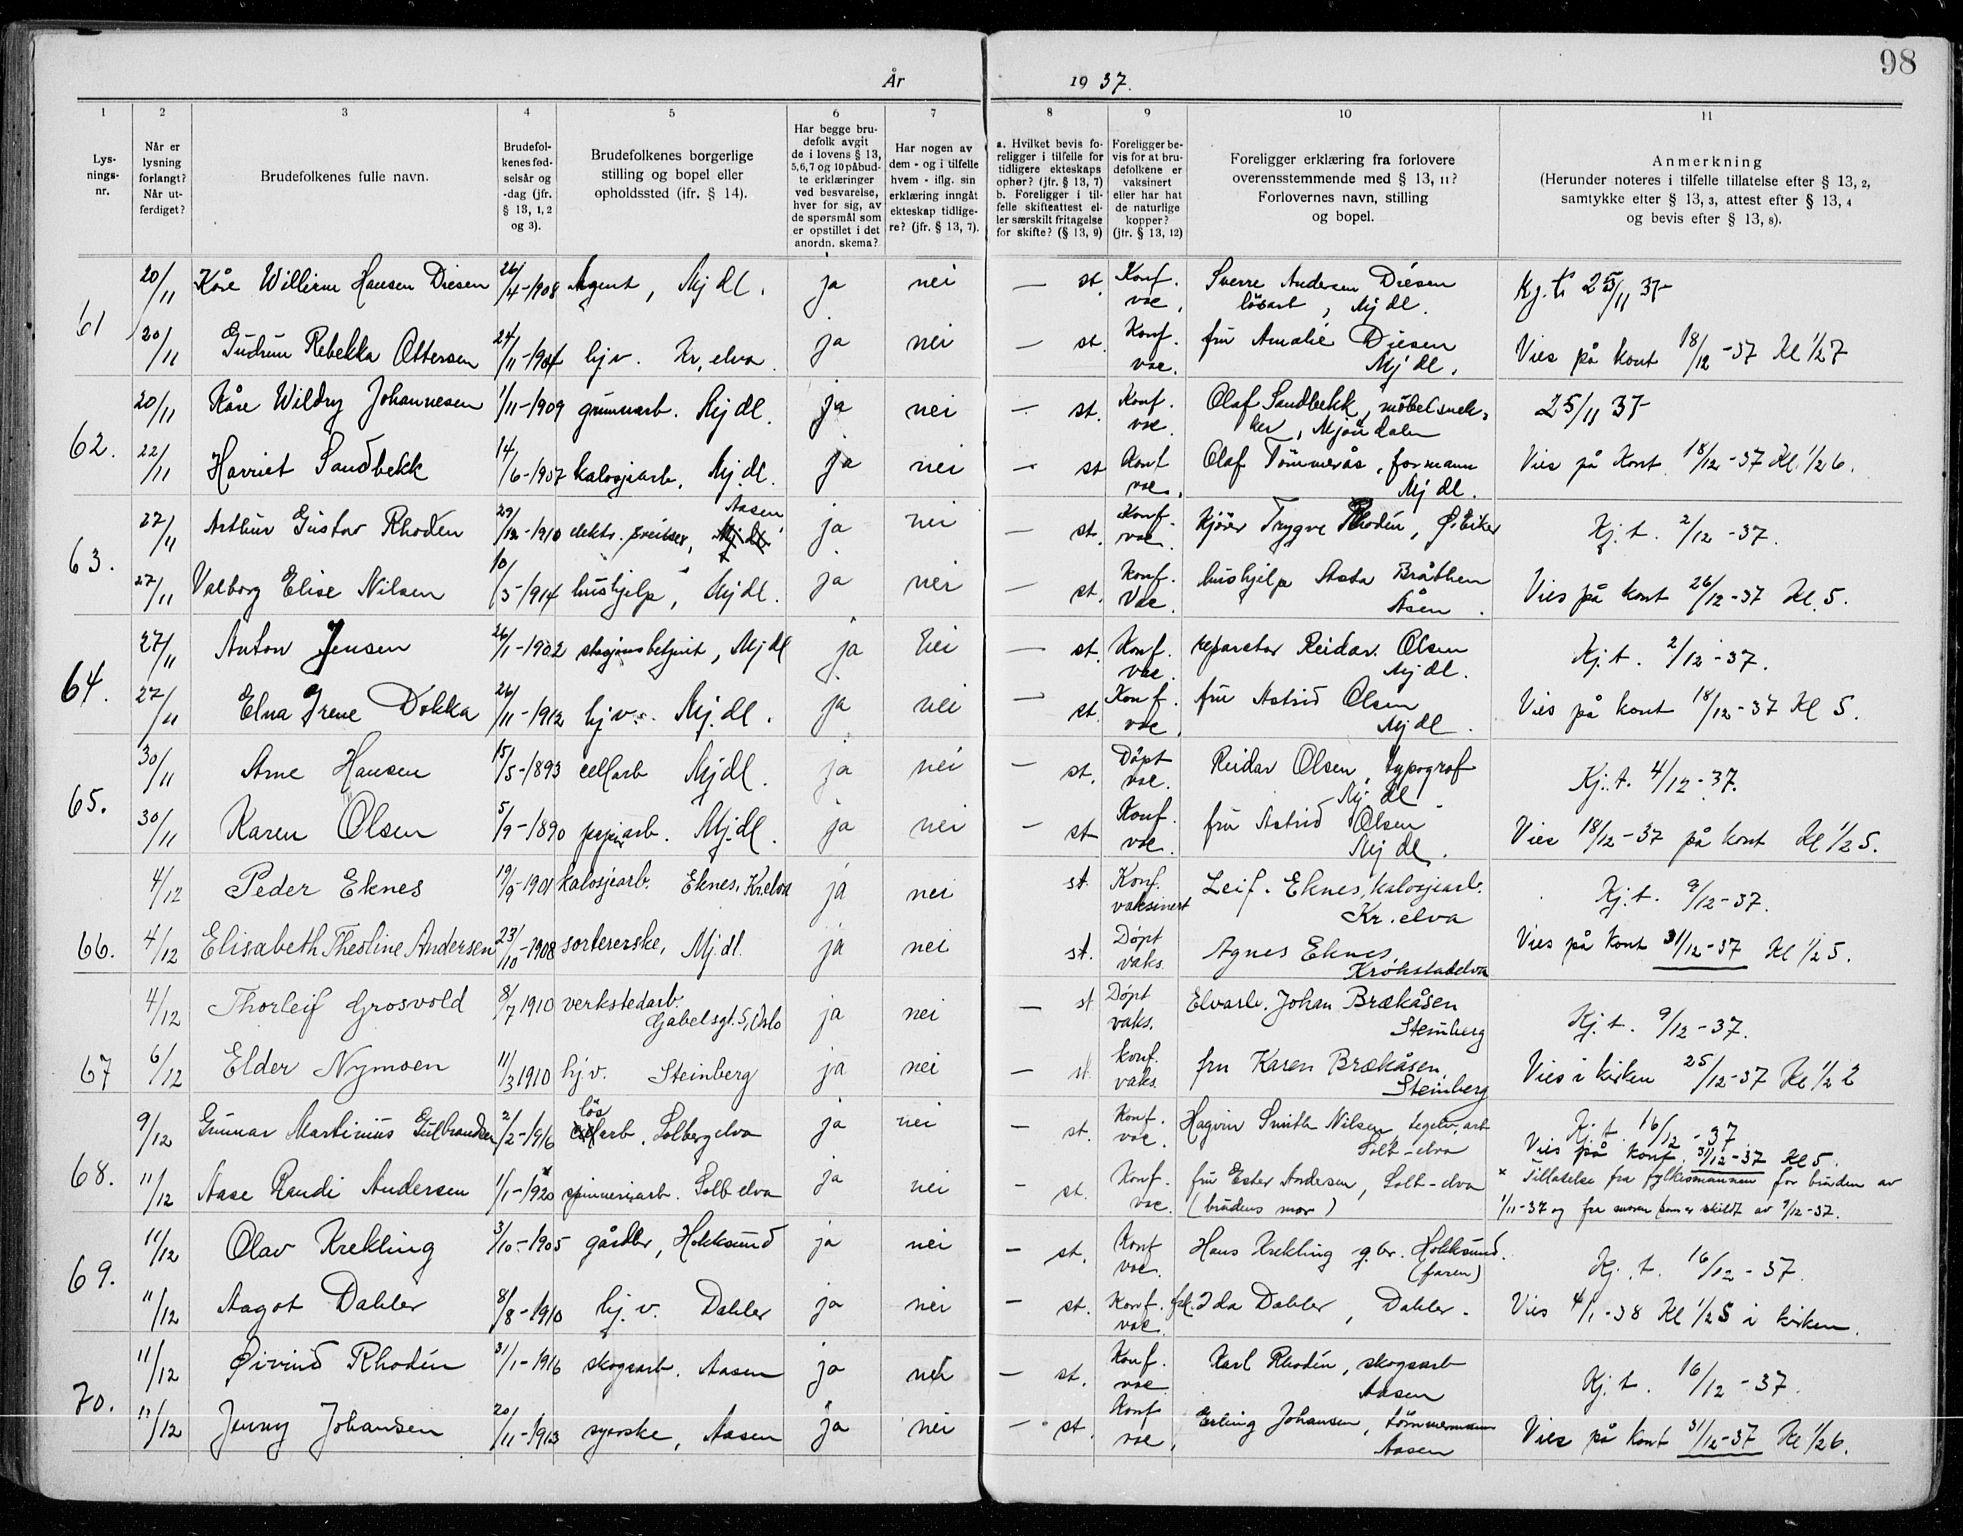 98
År 1937.
1 2 3 4 5 6 7 8 9 10 11
Lys-
nings-
nr.
Når er
lysning
forlangt?
Når ut-
ferdiget?
Brudefolkenes fulle navn.
Brudefol-
kenes fød-
selsår og
-dag (jfr.
§ 13, 1, 2
og 3).
Brudefolkenes borgerlige
stilling og bopel eller
opholdssted (ifr. § 14).
Har begge bru-
defolk avgit
de i lovens § 13,
5,6,7 og 10 påbud-
te erklæringer
ved besvarelse,
hver for sig, av
de spørsmål som
er opstillet i det
anordn. skema?
Har nogen av
dem - og i tilfelle
hvem - iflg. sin
erklæring inngåt
ekteskap tidlige-
re? (jfr. § 13, 7).
a. Hvilket bevis fo-
religger i tilfelle for
tidligere ekteskaps
ophør? (jfr. § 13, 7)
b. Foreligger i til-
felle skifteattest el-
ler særskilt fritagelse
for skifte? (§ 13, 9)
Foreligger be-
vis for at bru-
defolkene er
vaksinert
eller har hat
de naturlige
kopper?
(jfr. § 13, 12)
Foreligger erklæring fra forlovere
overensstemmende med § 13, 11?
Forlovernes navn, stilling
og bopel.
Anmerkning
(Herunder noteres i tilfelle tillatelse efter § 13, 2,
samtykke efter § 13, 3, attest efter § 13, 4
og bevis efter § 13, 8).
61 20/11 Kåre Willirm Hansen Diesen 26/4-1908 Agent, Mj dl. ja nei — st. Konf. vac. Sverre Andersen Diesen løsarb, Mj dl. Kj.t. 25/11 37
20/11 Gudrun Rebekka Ottersen 24/11-1904 hj v. Kr, elva. ja nei — st. Konf. vac. fru Amalie Diesen Mj dl. Vies på kont 18/12-37 Kl 1/2 7
62. 20/11 Kåre Wildry Johannesen 1/11-1909 grunnarb. Mj dl. ja nei — st. Konf. vac. Olaf Sandbekk, møbelsnek- ker, Mjøndalen 25/11 37
22/11 Harriet Sandbekk 14/6-1907 kalosjearb, Mj. dl. ja nei — st Konf vac. Olaf Tømmerås, formann Mj dl. Vies på Kont. 18/12-37 Kl. 1/2 6.
63. 27/11 Arthur Gustav Rhoden 29/12-1910 elektr. sveitser, Aasen ja nei — st. Konf. vac. kjører Trygve Rhodin, Ø. Eiker Kj. t. 2/12-37.
27/11 Valborg Elise Nilsen 10/3-1914 hushjelp, Mj dl. ja nei — st. konf. Vac. hushjelp Asta Bråthen Åsen. Vies på kont 26/12-37 Kl. 5.
64. 27/11 Anton Jensen 26/1-1902 stasjonsbetjent, Mj dl ja nei — st. Konf. vac. reparatør Reidar Olsen Mj dl. Kj. t. 2/12-37.
27/11 Elna Irene Dokka 26/11-1912 hj v. Mj. dl. ja nei — st. Konf. vac. fru Astrid Olsen Mj dl. Vies på kont 18/12-37 Kl 5.
65. 30/11 Arne Hansen 15/5-1893 cellarb Mj dl. ja nei — st. Døpt vac. Reidar Olsen, typograf Mj. dl. Kj. t. 4/12-37.
30/11 Karen Olsen 5/9-1890 papirarb. Mj. dl. ja nei — st Konf. vac. fru Astrid Olsen Mj dl. Vies 18/12-37 på kont Kl 1/2 5.
66. 4/12 Peder Eknes 19/9-1901 kalosjearb. Eknes, Kr.elva ja nei st. Konf. vaksinert Leif. Eknes, kalosjearb. Kr. elva Kj. t. 9/12-37.
4/12 Elisabeth Theoline Andersen 23/10-1908 sortererske, Mj. dl. ja nei st. Døpt vaks. Agnes Eknes, Krokstadelva Vies på kont 31/12-37 Kl 1/2 5.
67 4/12 Thorleif Grosvold 8/7 1910 verkstedarb. Gabelsgt. 5, Oslo ja nei — st Døpt vaks. Elvarb. Johan Brækåsen Steinberg Kj. t. 9/12-37.
6/12 Elder Nymoen 11/3 1910 hj. v. Steinberg ja nei — st. konf. vaks. fru Karen Brækåsen, Steinberg Vies i kirken 25/12-37 Kl 1/2 2
68. 9/12 Gunnar Martinius Gulbrandsen 2/2-1916 løsarb, Solbergelva ja nei — st. Konf. vac. Hagvin Smith Nilsen, tegelv. arb Solb-elva Kj. t. 16/12-37 Vies på kont. 31/12-37 Kl 5.
11/12 Aase Randi Andersen 1/1-1920 spinneriarb. Solb elva ja nei — st. Konf. vac. fru Ester Andersen, Solb-elva (brudens mor) x Tillatelse fra fylkesmannen for bruden av 1/11-37 og fra moren som er skildt av 9/12-37.
69. 11/12 Olav Krekling 3/10-1905 gårdbr, Hokksund ja nei — st. Konf vac. Hans Krekling g. br. Hokksund. (faren) Kj. t. 16/12-37.
11/12 Aagot Dahler 8/8-1910 hj. v. Dahler ja nei — st. Konf. vac. frk. Ida Dahler, Dahler. Vies 4/1-38 Kl 1/2 5 i kirken.
70. 11/12 Øivind Rhodin 31/1-1916 skogsarb. Aasen ja nei — st. Konf. vac. Karl Rhodin, skogsarb Aasen Kj. t. 16/12-37.
11/12 Jenny Johansen 20/11-1913 syerske, Aasen ja nei — st. Konf vac. Erling Johansen, tømmermann Aasen Vies på kont 31/12-37 Kl 1/2 6.